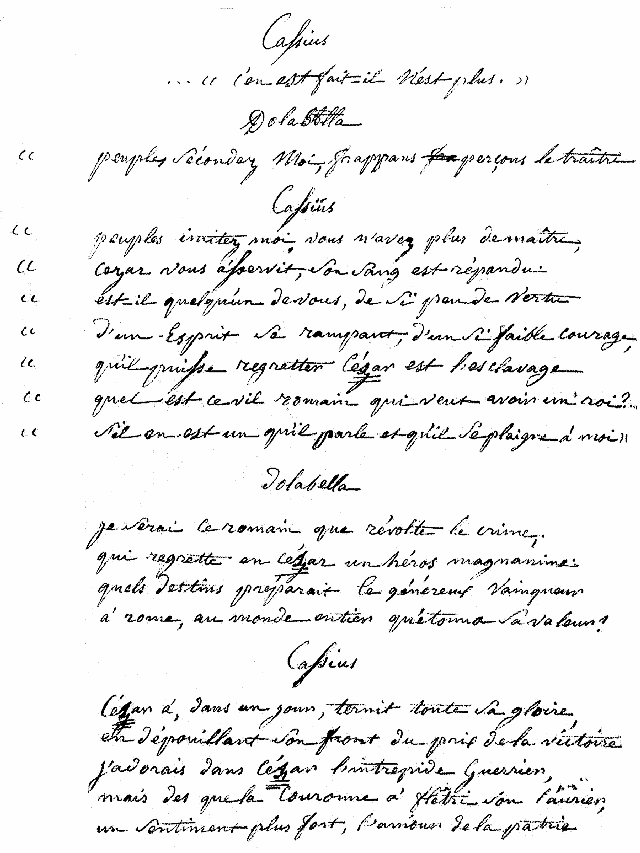 Cassius
... « c'en est fait-il n'est plus. »
Dolabella
« peuples sécondez moi, frappans perçons le traître
Cassius
« peuples imitez moi, vous n'avez plus de maître,
« Cezar vous asservit, son sang est répandu:
« est-il quelqu'un de vous, de si peu de vertu
« d'un Esprit si rampant, d'un si faible courage,
« qu'il puisse regretter César est l'esclavage
« quel est ce vil romain qui veut avoir un roi?...
« s'il en est un qu'il parle et qu'il se plaigne á moi »
dolabella
je serai ce romain que révolte le crime,.
qui regrette en César un héros magnanime:
quels destins préparait le généreux vainqueur
á rome, au monde entier qu'étonna sa valeur!
Cassius
César á, dans un jour, ternit toute sa gloire,
en dépouillant son front du prix de la victoire
j'adorais dans César l'intrepide Guerrier,
mais des que la Couronne á flêtri son laurier,
un sentiment plus fort, l'amour de la patrie